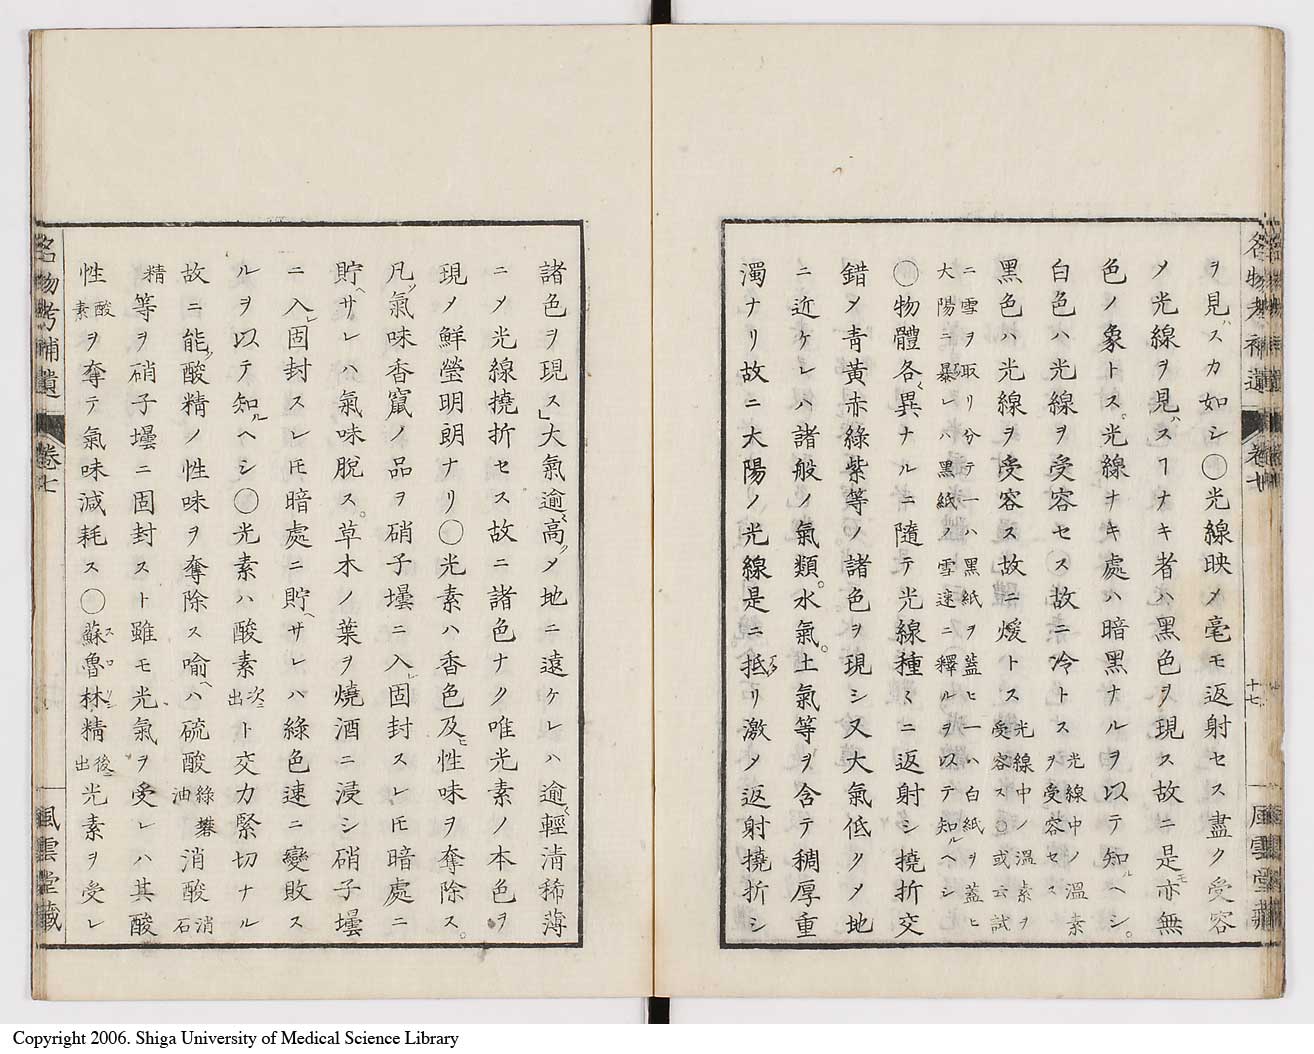 ヲ見ズカ如シ○光線映メ毫モ返射セス盡ク受容
メ光線ヲ見ハスヿナキ者ハ黒色ヲ現ス故ニ是亦無
色ノ象トス。光線ナキ處ハ暗黒ナルヲ以テ知ルヘシ。
白色ハ光線ヲ受容セス故ニ冷トス光線中ノ温素ヲ受容セス
黒色ハ光線ヲ受容ス故ニ煖トス光線中ノ温素ヲ受容ス○或云試
ニ雪ヲ取リ分テ一ハ黒紙ヲ蓋ヒ一ハ白紙ヲ蓋ヒ
大陽ニ暴レハ黒紙ノ雪速ニ釋ルヲ以テ知ルヘシ
○物體各〻異ナルニ隨テ光線種〻ニ返射シ撓折交
錯メ青黄赤綠紫等ノ諸色ヲ現シ又大氣低クメ地
ニ近ケレハ諸般ノ氣類。水氣。土氣等ヲ含テ稠厚重
濁ナリ故ニ大陽ノ光線是ニ抵リ激メ返射撓折シ
諸色ヲ現ス」大氣逾〻高クメ地ニ遠ケレハ逾〻輕清稀薄
ニメ光線撓折セス故ニ諸色ナク唯光素ノ本色ヲ
現メ鮮瑩明朗ナリ○光素ハ香色及ヒ性味ヲ奪除ス。
凡ソ氣味香竄ノ品ヲ硝子壜ニ入レ固封スレ𪜈暗處ニ
貯ヘサレハ氣味脱ス。草木ノ葉ヲ燒酒ニ浸シ硝子壜
ニ入レ固封スレ𪜈暗處ニ貯ヘサレハ綠色速ニ變敗ス
ルヲ以テ知ルヘシ○光素ハ酸素次ニ出ト交力緊切ナル
故ニ能ク酸精ノ性味ヲ奪除ス喻ヘハ硫酸綠礬油消酸消石
精等ヲ硝子壜ニ固封スト雖モ光氣ヲ受レハ其酸
性酸素ヲ奪テ氣味減耗ス○蘇魯林精後ニ出光素ヲ受レ
名物考補遺
卷七
十七
風雲堂藏
名物考補遺
卷七
風雲堂藏
Copyright 2006. Shiga University of Medical Science Library